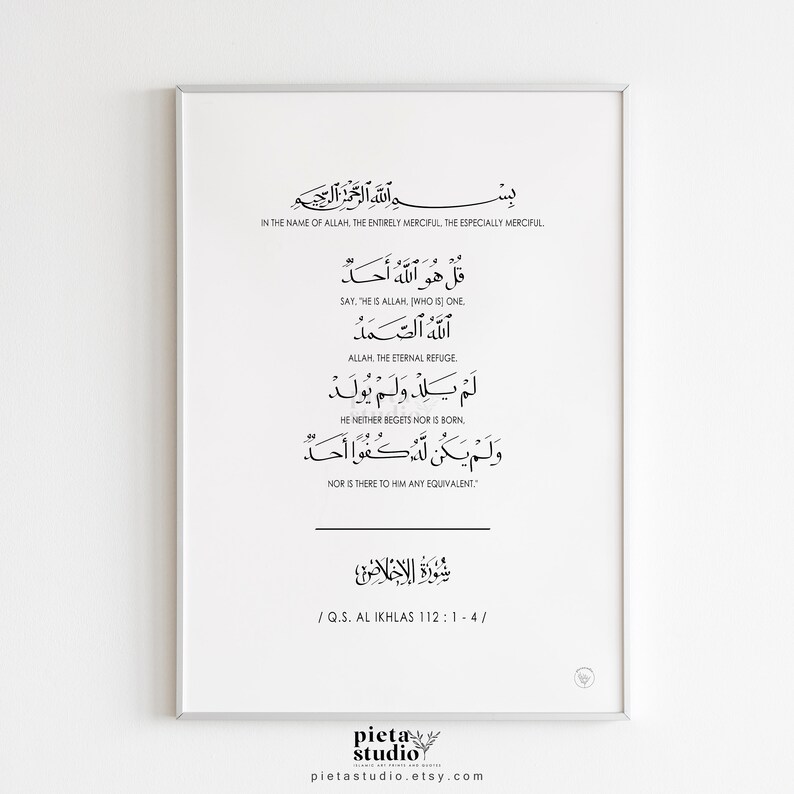 بِسْمِ ٱللَّهِ ٱلرَّحْمَٰنِ ٱلرَّحِيمِ
IN THE NAME OF ALLAH, THE ENTIRELY MERCIFUL, THE ESPECIALLY MERCIFUL.
قُلْ هُوَ ٱللَّهُ أَحَدٌ
SAY, "HE IS ALLAH, [WHO IS] ONE,
ٱللَّهُ ٱلصَّمَدُ
ALLAH, THE ETERNAL REFUGE.
لَمْ يَلِدْ وَلَمْ يُولَدْ
pieta
studio
HE NEITHER BEGETS NOR IS BORN,
وَلَمْ يَكُن لَّهُۥ كُفُوًا أَحَدٌۢ
NOR IS THERE TO HIM ANY EQUIVALENT."
سُورَةُ الإِخْلَاصِ
/ Q.S. AL IKHLAS 112 : 1 - 4 /
pieta
studio
ISLAMIC ART PRINTS AND QUOTES
pietastudio.etsy.com